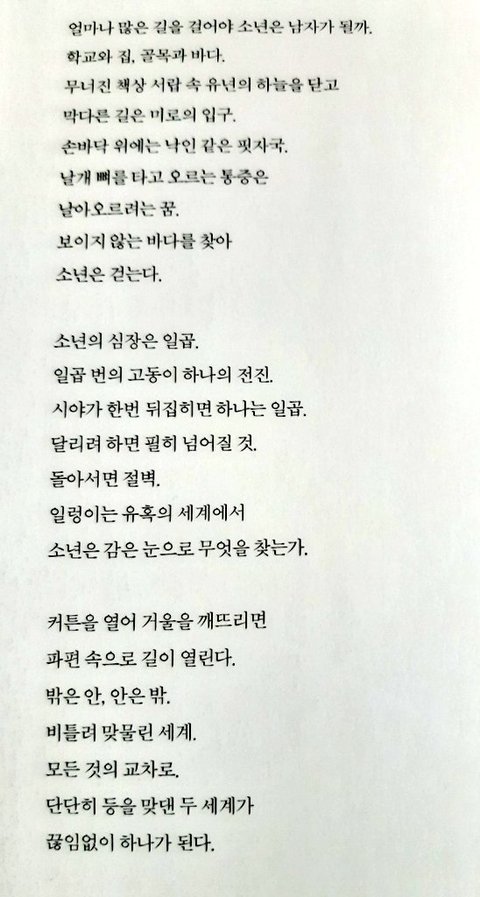 얼마나 많은 길을 걸어야 소년은 남자가 될까.
학교와 집, 골목과 바다.
무너진 책상 서랍 속 유년의 하늘을 닫고
막다른 길은 미로의 입구.
손바닥 위에는 낙인 같은 핏자국.
날개 뼈를 타고 오르는 통증은
날아오르려는 꿈.
보이지 않는 바다를 찾아
소년은 걷는다.
소년의 심장은 일곱.
일곱 번의 고동이 하나의 전진.
시야가 한번 뒤집히면 하나는 일곱.
달리려 하면 필히 넘어질 것.
돌아서면 절벽.
일렁이는 유혹의 세계에서
소년은 감은 눈으로 무엇을 찾는가.
커튼을 열어 거울을 깨뜨리면
파편 속으로 길이 열린다.
밖은 안, 안은 밖.
비틀려 맞물린 세계.
모든 것의 교차로.
단단히 등을 맞댄 두 세계가
끊임없이 하나가 된다.